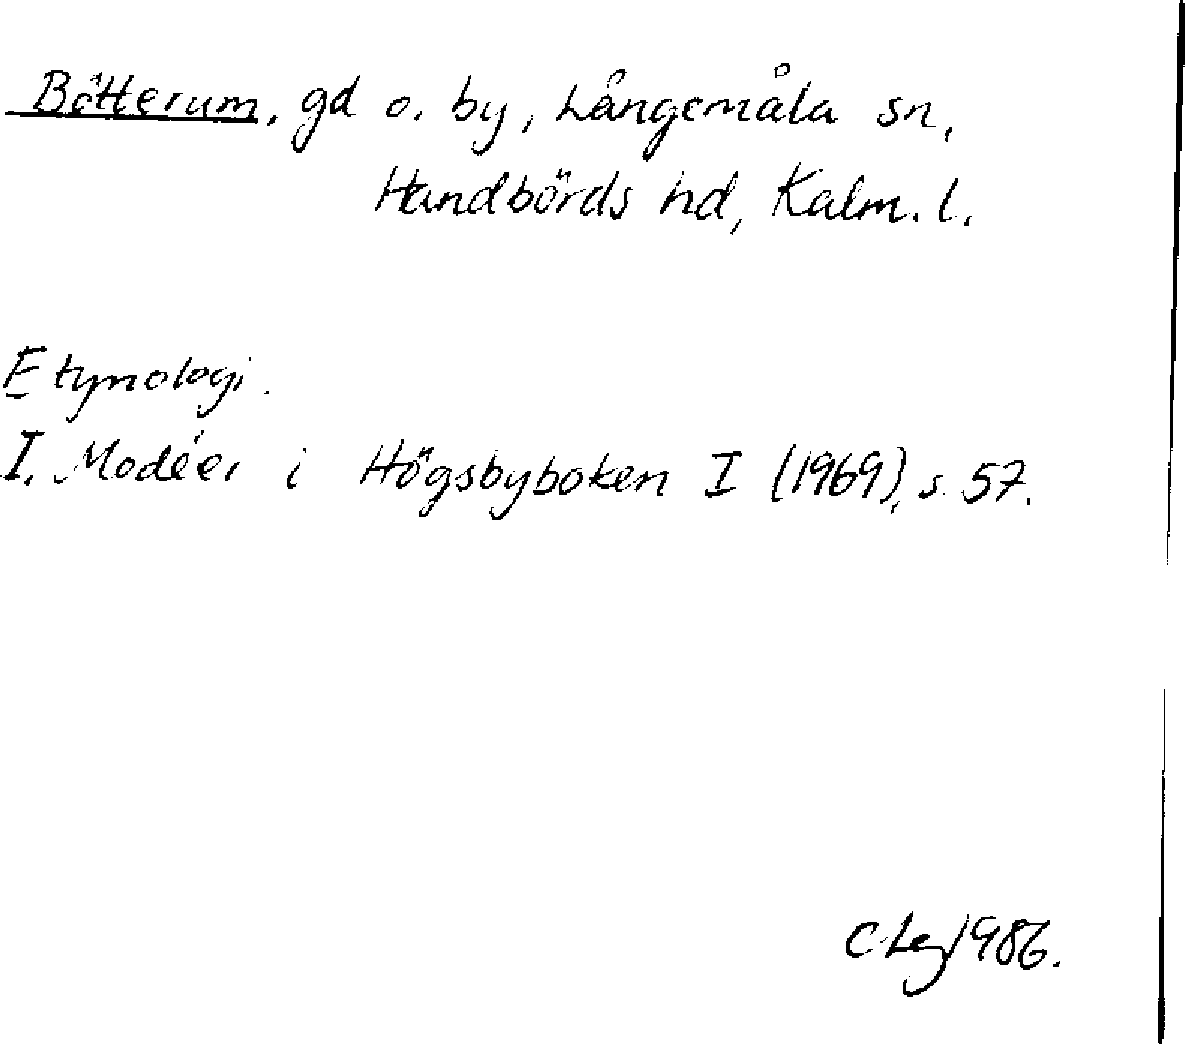 Bötterum, gd o. by, Långemåla sn,
Handbörds hd, Kalm. l.
Etymologi.
I. Modéer i Högsbyboken I (1969), s. 57.
1986.